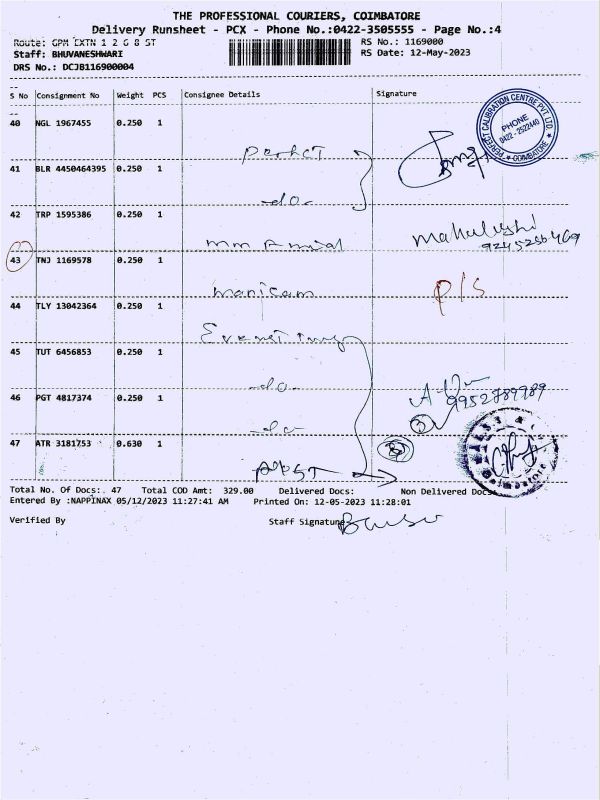 THE PROFESSIONAL COURIERS, COIMBATORE
Delivery Runsheet - PCX - Phone No.:0422-3505555 - Page No.:4
Route: GPM EXTN 1 2 6 8 ST
RS No.: 1169000
Staff: BHUVANESHWARI
RS Date: 12-May-2023
DRS No.: DCJB116900004
S No Consignment No Weight PCS Consignee Details Signature
40 NGL 1967455 0.250 1
Perfect
41 BLR 4450464395 0.250 1
-do-
42 TRP 1595386 0.250 1
43 TNJ 1169578 0.250 1
P/S
44 TLY 13042364 0.250 1
45 TUT 6456853 0.250 1
-do-
46 PGT 4817374 0.250 1
-do-
47 ATR 3181753 0.630 1
PERFECT CALIBRATION CENTRE PVT LTD.
PHONE
0422 - 2522440
COIMBATORE
9952789789
Total No. Of Docs: 47 Total COD Amt: 329.00 Delivered Docs: Non Delivered Docs:
Entered By :NAPPINAX 05/12/2023 11:27:41 AM Printed On: 12-05-2023 11:28:01
Verified By Staff Signature